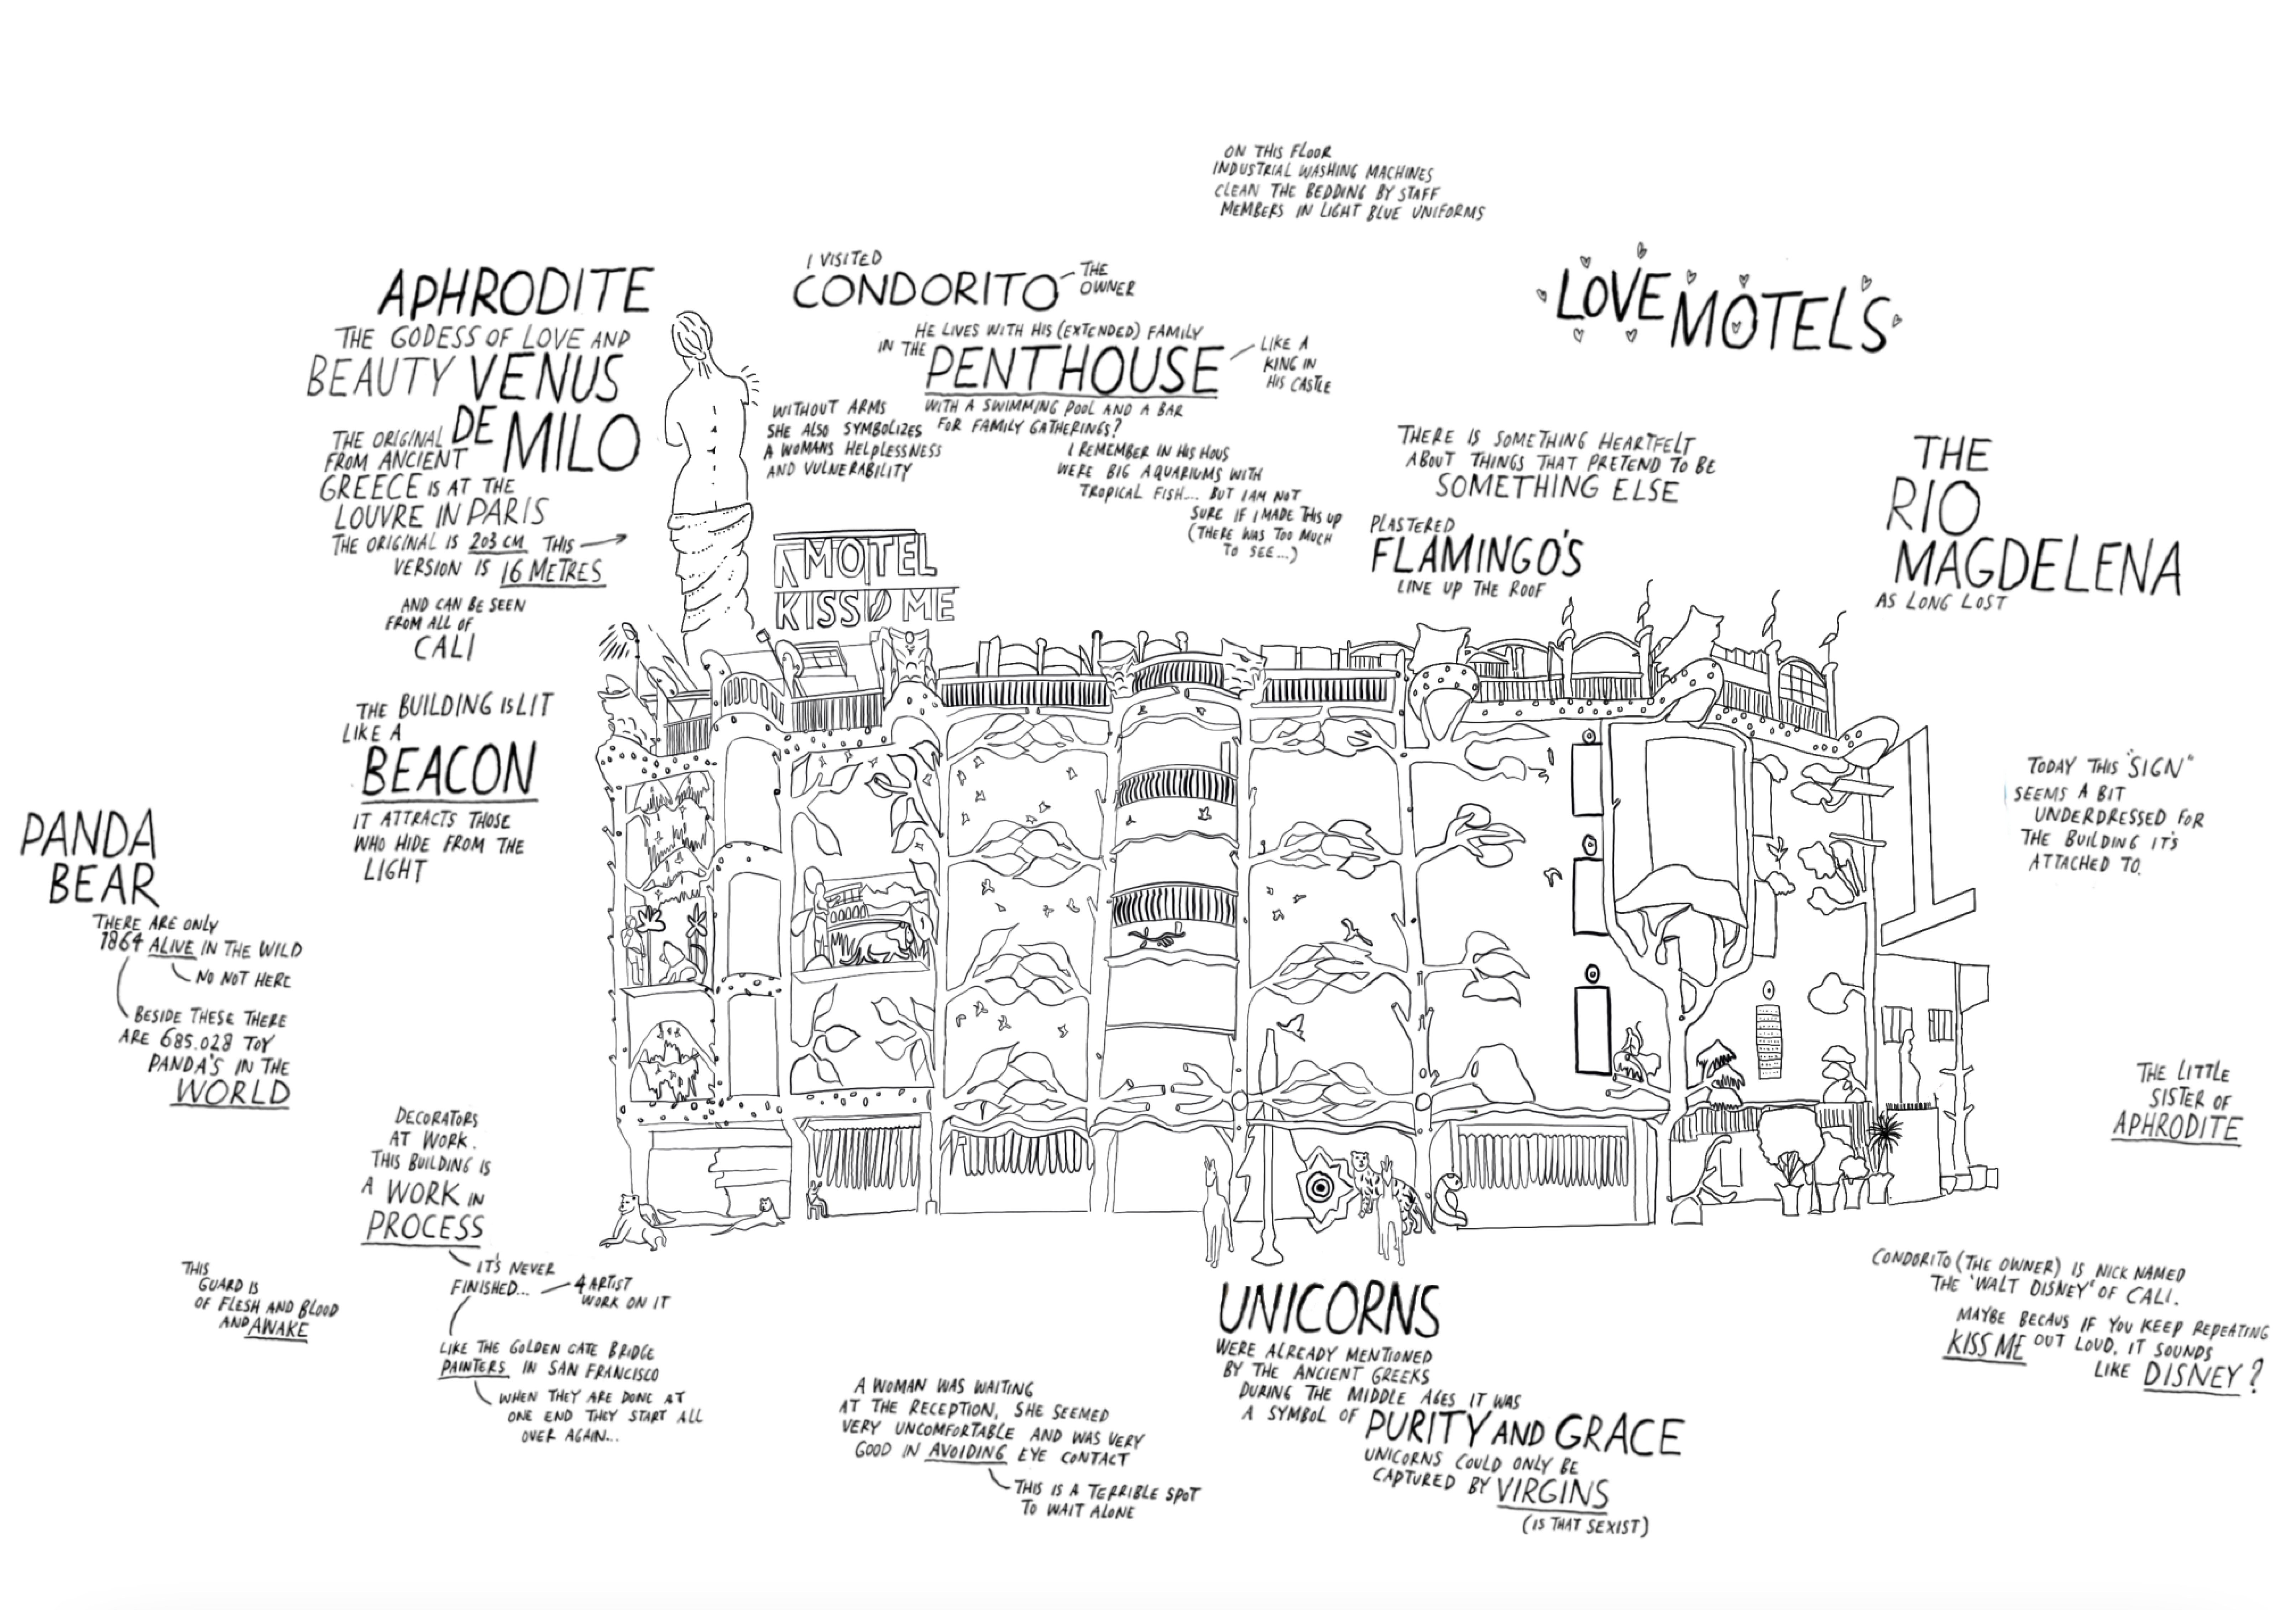 ON THIS FLOOR
INDUSTRIAL WASHING MACHINES
CLEAN THE BEDDING BY STAFF
MEMBERS IN LIGHT BLUE UNIFORMS
APHRODITE
THE GODESS OF LOVE AND
BEAUTY VENUS
DE MILO
THE ORIGINAL
FROM ANCIENT
GREECE IS AT THE
LOUVRE IN PARIS
THE ORIGINAL IS 203 CM THIS
VERSION IS 16 METRES
AND CAN BE SEEN
FROM ALL OF
CALI
WITHOUT ARMS
SHE ALSO SYMBOLIZES
A WOMANS HELPLESSNESS
AND VULNERABILITY
I VISITED
CONDORITO
THE
OWNER
HE LIVES WITH HIS (EXTENDED) FAMILY
IN THE PENTHOUSE
LIKE A
KING IN
HIS CASTLE
WITH A SWIMMING POOL AND A BAR
FOR FAMILY GATHERINGS?
I REMEMBER IN HIS HOUS
WERE BIG AQUARIUMS WITH
TROPICAL FISH... BUT I AM NOT
SURE IF I MADE THIS UP
(THERE WAS TOO MUCH
TO SEE...)
LOVE MOTEL'S
THERE IS SOMETHING HEARTFELT
ABOUT THINGS THAT PRETEND TO BE
SOMETHING ELSE
PLASTERED
FLAMINGO'S
LINE UP THE ROOF
THE
RIO
MAGDELENA
AS LONG LOST
MOTEL
KISS ME
THE BUILDING IS LIT
LIKE A
BEACON
IT ATTRACTS THOSE
WHO HIDE FROM THE
LIGHT
TODAY THIS "SIGN"
SEEMS A BIT
UNDERDRESSED FOR
THE BUILDING IT'S
ATTACHED TO.
PANDA
BEAR
THERE ARE ONLY
1864 ALIVE IN THE WILD
NO NOT HERE
BESIDE THESE THERE
ARE 685.028 TOY
PANDA'S IN THE
WORLD
THE LITTLE
SISTER OF
APHRODITE
DECORATORS
AT WORK.
THIS BUILDING IS
A WORK IN
PROCESS
IT'S NEVER
FINISHED...
4 ARTIST
WORK ON IT
LIKE THE GOLDEN GATE BRIDGE
PAINTERS IN SAN FRANCISCO
WHEN THEY ARE DONE AT
ONE END THEY START ALL
OVER AGAIN...
THIS
GUARD IS
OF FLESH AND BLOOD
AND AWAKE
A WOMAN WAS WAITING
AT THE RECEPTION, SHE SEEMED
VERY UNCOMFORTABLE AND WAS VERY
GOOD IN AVOIDING EYE CONTACT
THIS IS A TERRIBLE SPOT
TO WAIT ALONE
UNICORNS
WERE ALREADY MENTIONED
BY THE ANCIENT GREEKS
DURING THE MIDDLE AGES IT WAS
A SYMBOL OF PURITY AND GRACE
UNICORNS COULD ONLY BE
CAPTURED BY VIRGINS
(IS THAT SEXIST)
CONDORITO (THE OWNER) IS NICK NAMED
THE 'WALT DISNEY' OF CALI.
MAYBE BECAUS IF YOU KEEP REPEATING
KISS ME OUT LOUD, IT SOUNDS
LIKE DISNEY?